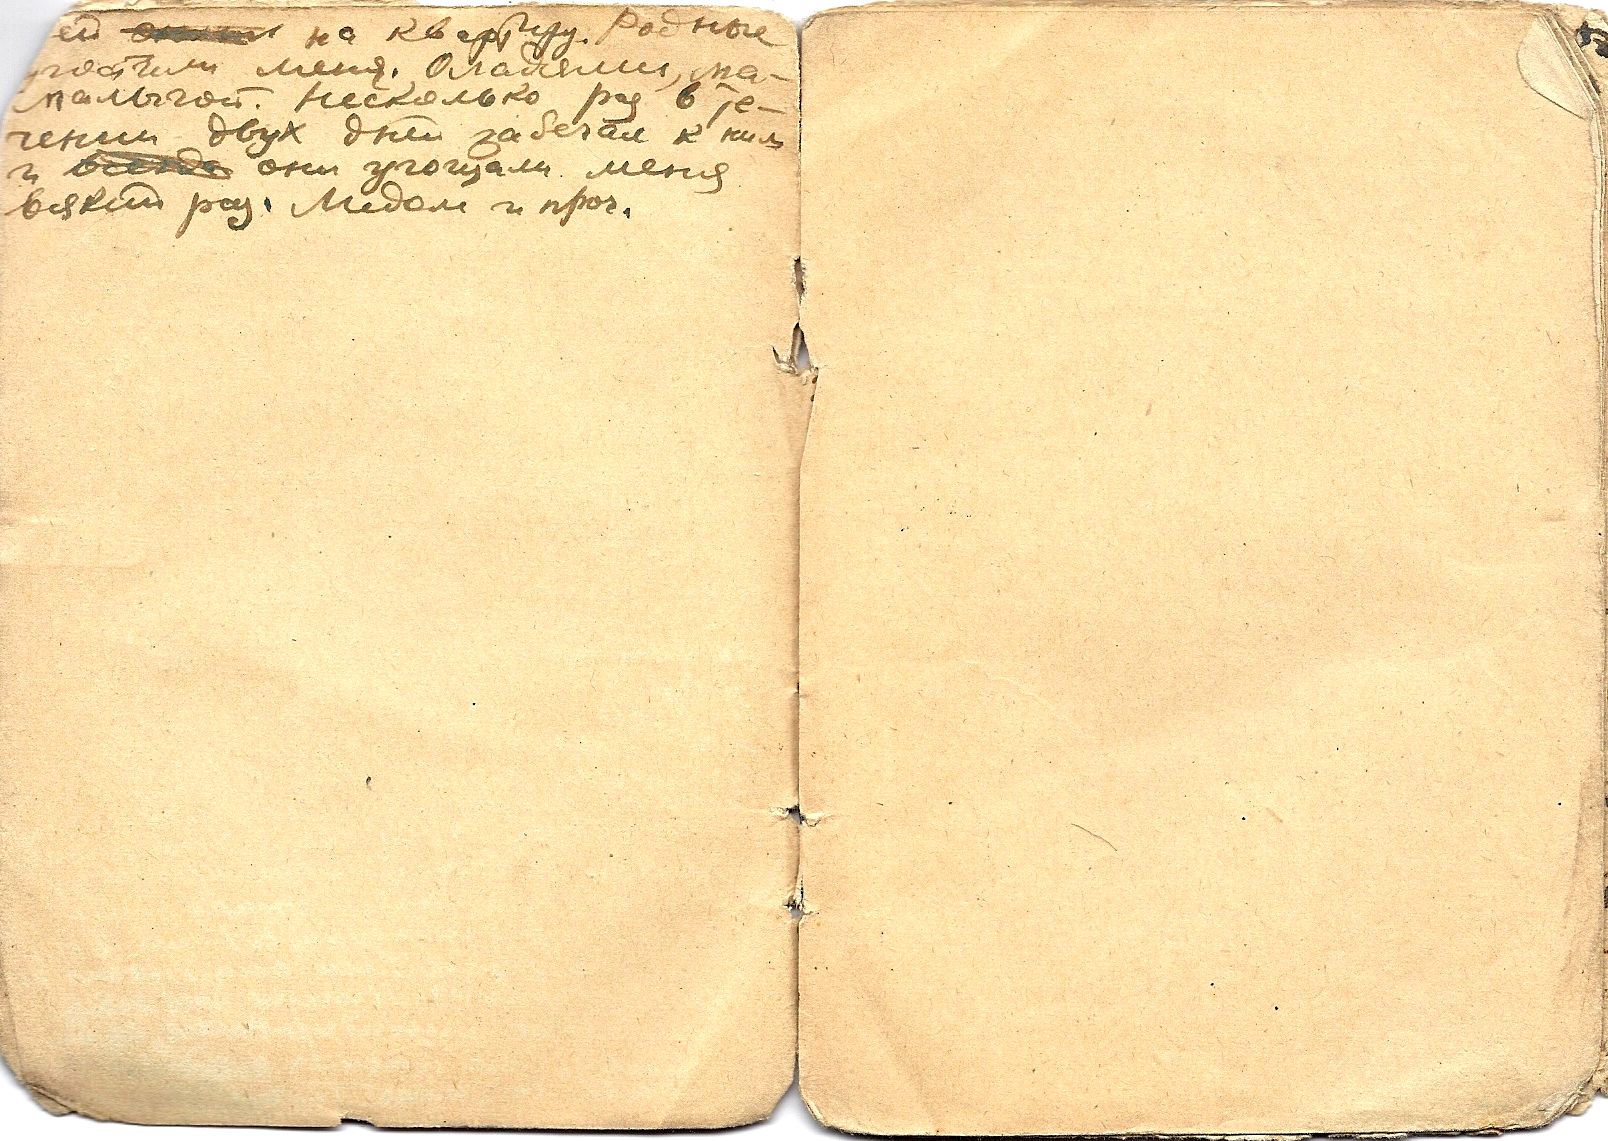 ей на квартиру. Родные
угостили меня. Оладьями, ма-
малыгой. Несколько раз в те-
чении двух дней забегал к ним
и всегда они угощали меня
всякий раз. Медом и проч.